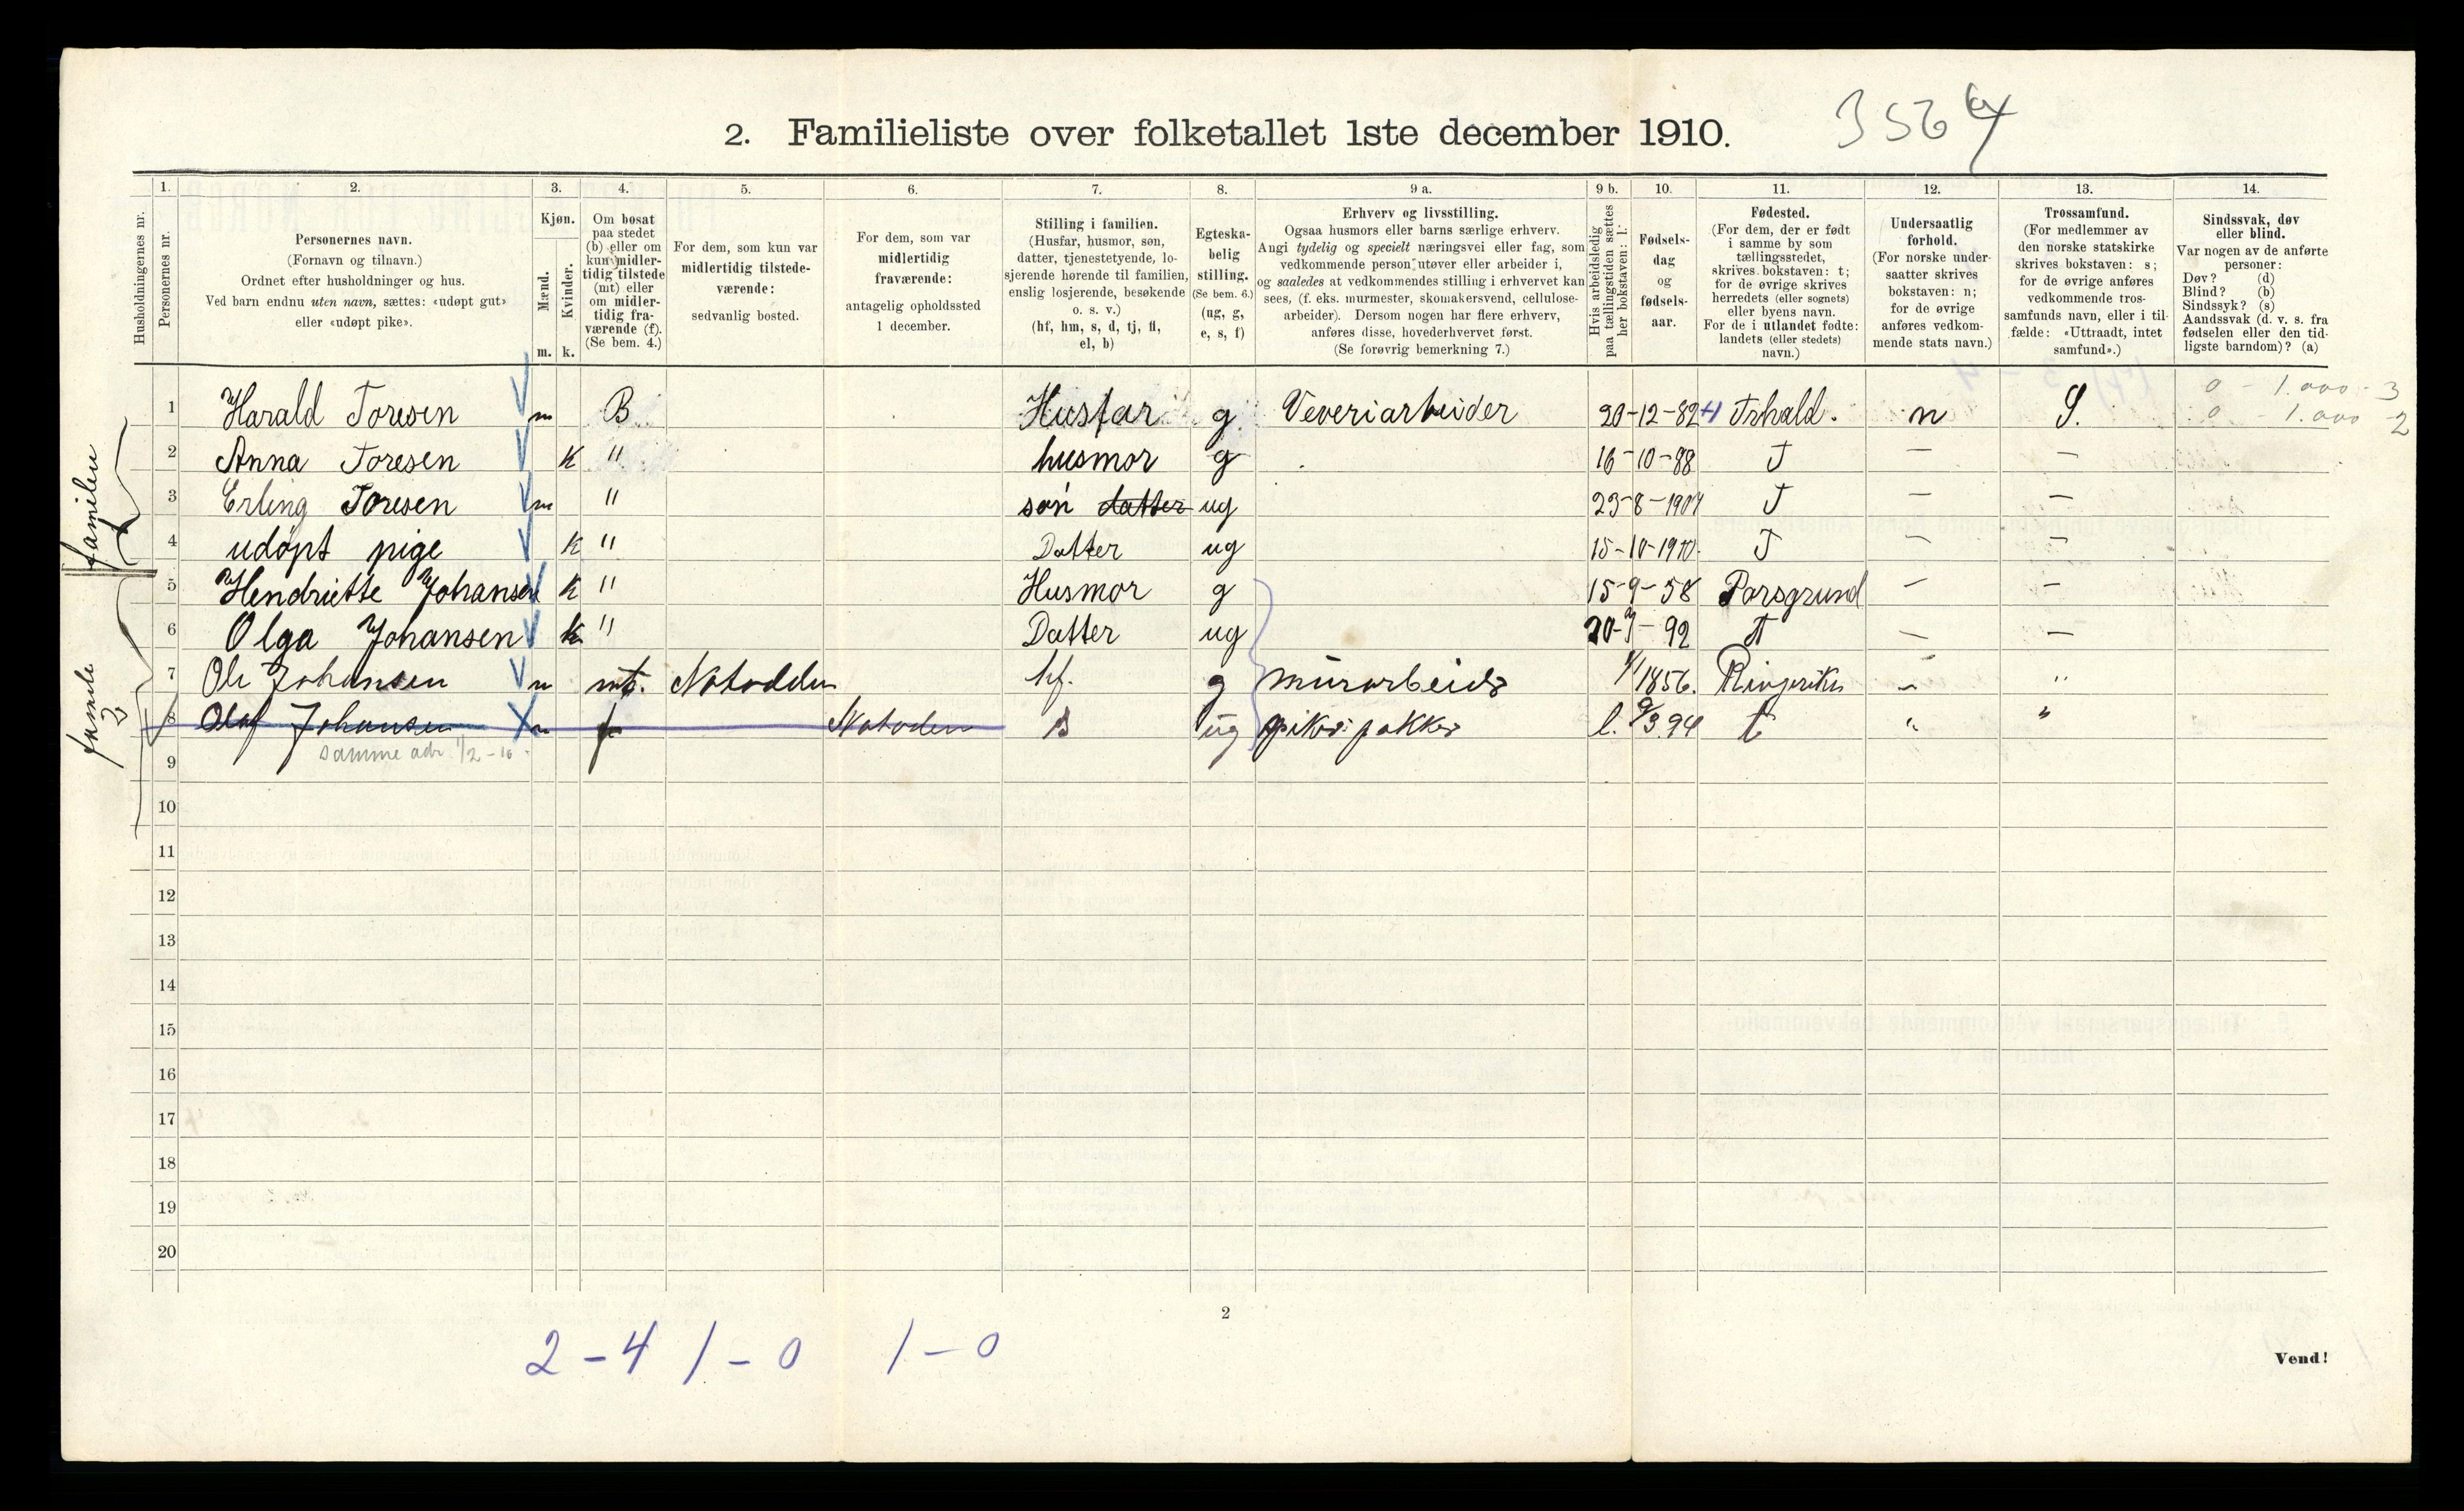 2. Familieliste over folketallet 1ste december 1910.
1. 2. 3. 4. 5. 6. 7. 8. 9 a. 9 b. 10. 11. 12. 13. 14.
Husholdningernes nr.
Personernes nr.
Personernes navn.
(Fornavn og tilnavn.)
Ordnet efter husholdninger og hus.
Ved barn endnu uten navn, sættes: «udøpt gut»
eller «udøpt pike».
Kjøn.
Mænd.
Kvinder.
m. k.
Om bosat
paa stedet
(b) eller om
kun midler-
tidig tilstede
(mt) eller
om midler-
tidig fra-
værende (f).
(Se bem. 4.)
For dem, som kun var
midlertidig tilstede-
værende:
sedvanlig bosted.
For dem, som var
midlertidig
fraværende:
antagelig opholdssted
1 december.
Stilling i familien.
(Husfar, husmor, søn,
datter, tjenestetyende, lo-
sjerende hørende til familien,
enslig losjerende, besøkende
o. s. v.)
(hf, hm, s, d, tj, fl,
el, b)
Egteska-
belig
stilling.
(Se bem. 6.)
(ug, g,
e, s, f)
Erhverv og livsstilling.
Ogsaa husmors eller barns særlige erhverv.
Angi tydelig og specielt næringsvei eller fag, som
vedkommende person utøver eller arbeider i,
og saaledes at vedkommendes stilling i erhvervet kan
sees, (f. eks. murmester, skomakersvend, cellulose-
arbeider). Dersom nogen har flere erhverv,
anføres disse, hovederhvervet først.
(Se forøvrig bemerkning 7.)
Hvis arbeidsledig
paa tællingstiden sættes
her bokstaven: l.
Fødsels-
dag
og
fødsels-
aar.
Fødested.
(For dem, der er født
i samme by som
tællingsstedet,
skrives bokstaven: t;
for de øvrige skrives
herredets (eller sognets)
eller byens navn.
For de i utlandet fødte:
landets (eller stedets)
navn.)
Undersaatlig
forhold.
(For norske under-
saatter skrives
bokstaven: n;
for de øvrige
anføres vedkom-
mende stats navn.)
Trossamfund.
(For medlemmer av
den norske statskirke
skrives bokstaven: s;
for de øvrige anføres
vedkommende tros-
samfunds navn, eller i til-
fælde: «Uttraadt, intet
samfund».)
Sindssvak, døv
eller blind.
Var nogen av de anførte
personer:
Døv? (d)
Blind? (b)
Sindssyk? (s)
Aandssvak (d. v. s. fra
fødselen eller den tid-
ligste barndom)? (a)
0 - 1.000 - 3
1 Harald Toresen m B Husfar g Veveriarbeider 20-12-82 Frhald. n S. 0 - 1.000 - 2
familien
2 Anna Toresen k " husmor g 16-10-88 T — —
3 Erling Toresen m " søn datter ug 23-8-1904 T — —
4 udøpt pige k " Datter ug 15-10-1910. T — —
5 Hendriette Johansen k " Husmor g 15-9-58 Porsgrund — —
6 Olga Johansen k " Datter ug 92 — —
familie
2
7 Ole Johansen m mt. Notodden hf. g murarbeider 1/1 1856. Ringerike " "
8 Olaf Johansen m f Notodden B ug l. 9/3.94 t " "
samme adr 1/2-10
9
10
11
12
13
14
15
16
17
18
19
20
2
2-4 1-0 1-0
Vend!